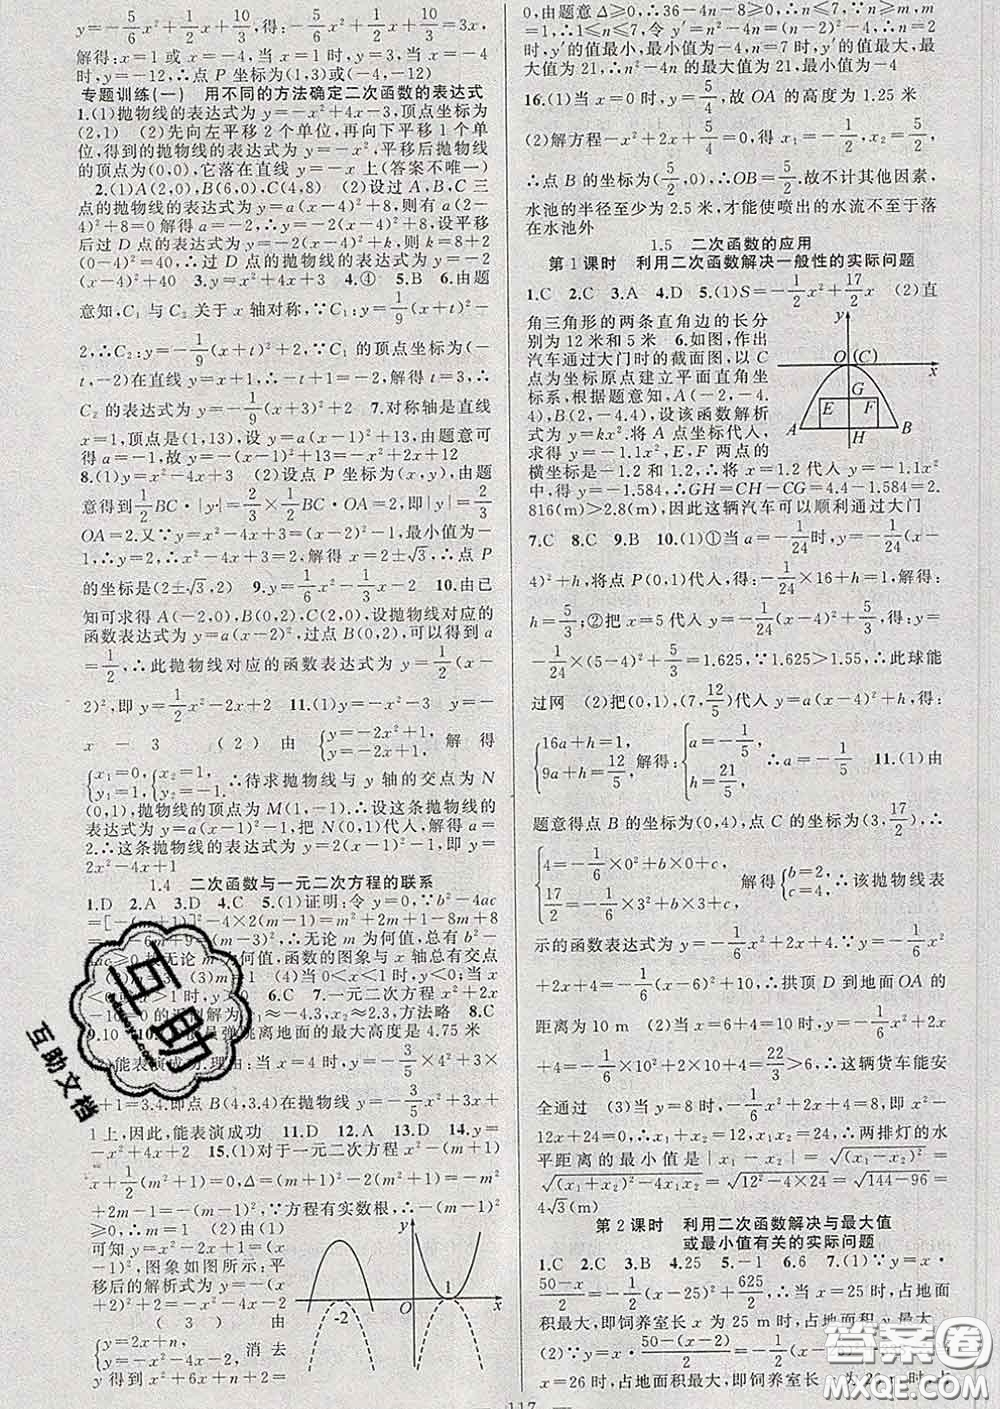 y=-5/6x²+1/6x+10/3,得:-5/6x²+1/6x+10/3=3x,
解得:x=1或x=-4,当x=1时,y=3,当x=-4
时,y=-12,∴点P坐标为(1,3)或(-4,-12)
专题训练(一) 用不同的方法确定二次函数的表达式
1.(1)抛物线的表达式为y=-x²+4x-3,顶点坐标为
(2,1) (2)先向左平移2个单位,再向下平移1个单
位,得到的抛物线的表达式为y=-x²,平移后抛物线
的顶点为(0,0),它落在直线y=-x上(答案不唯一)
2.(1)A(2,0),B(6,0),C(4,8) (2)设过A,B,C三
点的抛物线的表达式为y=a(x-4)²+8,则有a(2-
4)²+8=0解得a=-2,∴y=-2(x-4)²+8,设平移
后过D点的表达式为y=-2(x-4)²+k,则-2(0-
4)²+k=8,k=40,∴过D点的抛物线的表达式为y=
-2(x-4)²+40 3.y=x²+4x+3 4.④ 5.B 6.由题
意知,C₁与C₂关于x轴对称,∵C₁:y=1/9(x+t)²-
2,∴C₂:y=-1/9(x+t)²+2,∵C₁的顶点坐标为(-
t,-2)在直线y=x+1,∴-t+1=-2,解得t=3,∴
C₂的表达式为y=-1/9(x+3)²+2 7.对称轴是直线
x=1,顶点是(1,13),设y=a(x-1)²+13,由题意可
得a=-1,故y=-(x-1)²+13=-x²+2x+12
8.(1)y=x²-4x+3 (2)设点P坐标为(x,y),由题
意得到1/2BC·|y|=2/3×1/2BC·OA=2,即|y|=2/3
OA=2.又∵y=x²-4x+3=(x-2)²-1,最小值为-
1,∴y=2,∴x²-4x+3=2,解得x=2±√3,∴点P
的坐标是(2±√3,2) 9.y=1/6x²-1/3x-2 10.由已
知可求得A(-2,0),B(0,2),C(2,0),设抛物线对应的
函数表达式为y=a(x-2)²,过点B(0,2),可以得到a
=1/2,∴此抛物线对应的函数表达式为y=1/2(x-
2)²,即y=1/2x²-2x+2 11.(1)y=-x² y=-
x-3 (2)由{y=-2x²+1, y=-2x+1,解得
{x₁=0, y₁=1,{x₂=1, y₂=-1,∴待求抛物线与y轴的交点为N
(0,1),抛物线的顶点为M(1,-1),∴设这条抛物线的
表达式为y=a(x-1)²-1,把N(0,1)代入,解得a=
2.∴这条抛物线的表达式为y=2(x-1)²-1,即y=
2x²-4x+1
1.4 二次函数与一元二次方程的联系
1.D 2.A 3.D 4.C 5.(1)证明:令y=0,∵b²-4ac
=[-(m+1)]²-4×2(m-1)=m²+2m+1-8m+8
-6m+9=(m-3)²,∴无论m为何值,总有b²-
何值,函数的图象与x轴总有交点
(3)m=1 (4)当0<x<1时,y<0;当x
>1时,y>0 6.C 7.一元二次方程x²+2x-
≈-4.3,x₂≈2.3,方法略 8.C
离地面的最大高度是4.75米
能表演成功.理由:当x=4时,y=-3/5×4²+3×4
+1=3.4.即点B(4,3.4)在抛物线y=-3/5x²+3x+
1上,因此,能表演成功 11.D 12.A 13.D 14.y=
-x²+4x+2 15.(1)对于一元二次方程x²-(m+1)
x+1/2(m²+1)=0,Δ=(m+1)²-2(m²+1)=-m²+
2m-1=-(m-1)²,∵方程有实数根,∴-(m-1)²
≥0,∴m=1 (2)由(1)
可知y=x²-2x+1=(x
-1)²,图象如图所示:平
移后的解析式为y=-(x
+2)²+2=-x²-4x-2
(3)由
{y=2x+n, y=-x²-4x-2,消去
y得到x²+6x+n+2=
y
-2
O
1
x
0,由题意Δ≥0,∴36-4n-8≥0,∴n≤7,∵n≥m,m
=1,∴1≤n≤7,令y′=n²-4n=(n-2)²-4,∴n=2
时,y′的值最小,最小值为-4,n=7时,y′的值最大,最
大值为21,∴n²-4n的最大值为21,最小值为-4
16.(1)当x=0时,y=5/4,故OA的高度为1.25米
(2)解方程-x²+2x+5/4=0,得x₁=-1/2,x₂=5/2,
∴点B的坐标为(5/2,0),∴OB=5/2.故不计其他因素,
水池的半径至少为2.5米,才能使喷出的水流不至于落
在水池外
1.5 二次函数的应用
第1课时 利用二次函数解决一般性的实际问题
1.C 2.C 3.A 4.D 5.(1)S=-1/2x²+17/2x (2)直
角三角形的两条直角边的长分
别为12米和5米 6.如图,作出
汽车通过大门时的截面图,以C
点为坐标原点建立平面直角坐
标系,根据题意知,A(-2,-4.
4),B(2,-4.4),设该函数解析
式为y=kx².将A点坐标代入,
求得y=-1.1x²,E,F两点的
横坐标是-1.2和1.2,∴将x=1.2代入y=-1.1x²
中,得y=-1.584,∴GH=CH-CG=4.4-1.584=2.
816(m)>2.8(m),因此这辆汽车可以顺利通过大门
y
O (C)
x
G
E F
A H B
7.C 8.C 9.B 10.(1)①当a=-1/24时,y=-1/24(x-
4)²+h,将点P(0,1)代入,得:-1/24×16+h=1,解得:
h=5/3;②把x=5代入y=-1/24(x-4)²+5/3,得:y=
-1/24×(5-4)²+5/3=1.625,∵1.625>1.55,∴此球能
过网 (2)把(0,1),(7,12/5)代入y=a(x-4)²+h,得:
{16a+h=1, 9a+h=12/5,解得:{a=-1/5, h=21/5,∴a=-1/5 11.(1)由
题意得点B的坐标为(0,4),点C的坐标为(3,17/2),∴
{4=-1/6×0²+b×0+c, 17/2=-1/6×3²+b×3+c,解得{b=2, c=4,∴该抛物线表
示的函数表达式为y=-1/6x²+2x+4.∵y=-1/6x²+
2x+4=-1/6(x-6)²+10,∴拱顶D到地面OA的
距离为10 m (2)当x=6+4=10时,y=-1/6x²+2x
+4=-1/6×10²+2×10+4=22/3>6,∴这辆货车能安
全通过 (3)当y=8时,-1/6x²+2x+4=8,即x²-
12x+24=0,∴x₁+x₂=12,x₁x₂=24,∴两排灯的水
平距离的最小值是|x₁-x₂|=√(x₁-x₂)²=
√(x₁+x₂)²-4x₁x₂=√12²-4×24=√144-96=
4√3(m)
第2课时 利用二次函数解决与最大值
或最小值有关的实际问题
1.C 2.C 3.B 4.25 5.-1 6.6 7.(1)∵y=
x·50-x/2=-1/2(x-25)²+625/2,∴当x=25时,占地面
积最大,即饲养室长x为25 m时,占地面积y最大
(2)∵y=x·50-(x-2)/2=-1/2
x=26时,占地面积最大,即饲养室长x为26 m时,占
117
互助
互助文档
答案圈
MXQE.COM